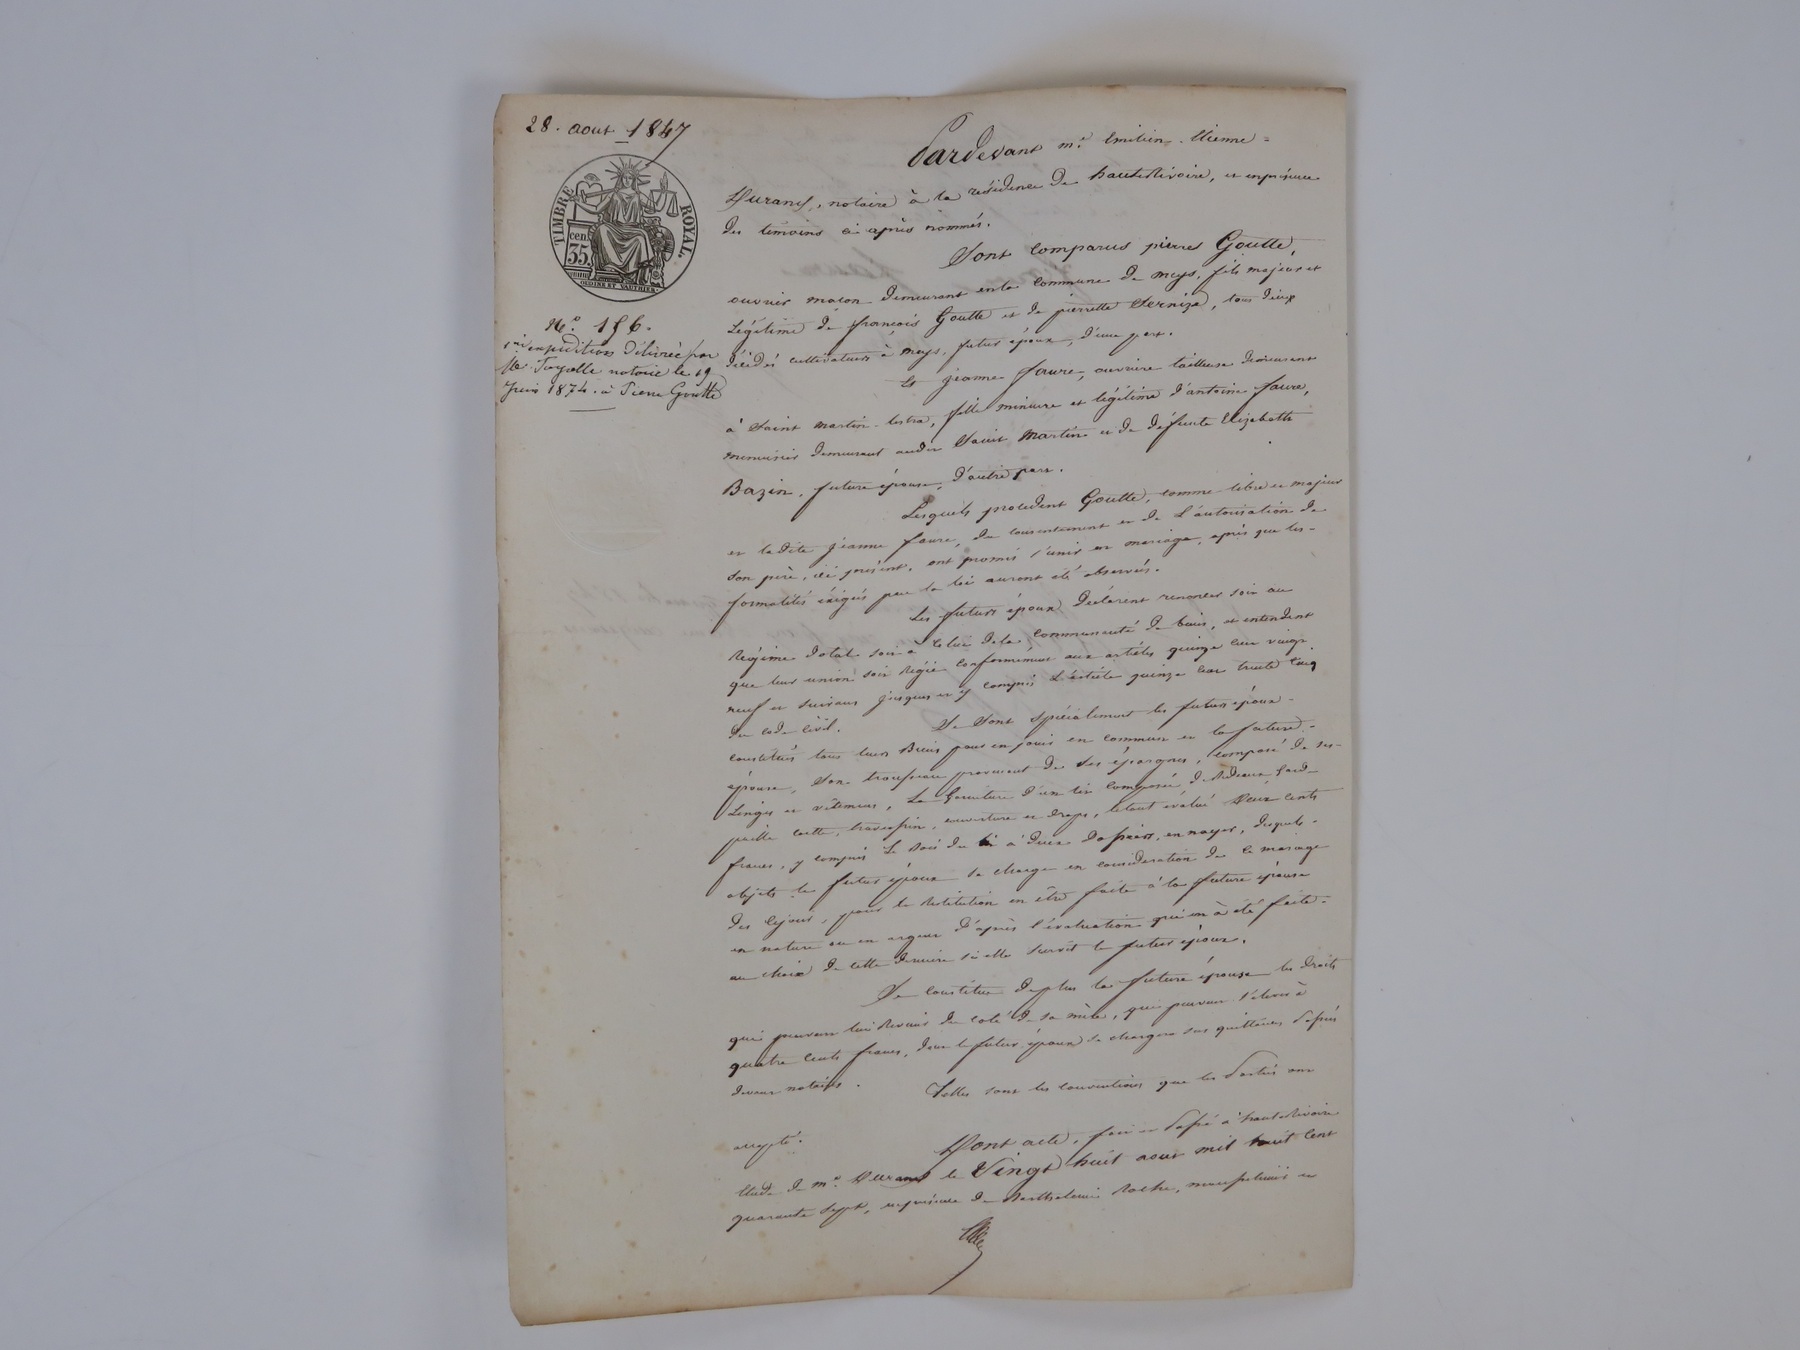 28. aout 1847
TIMBRE ROYAL.
cen. 35.
N.o 156.
1ère expédition délivrée par
Me Fayolle notaire le 19
Juin 1874. à Pierre Goutte
Pardevant m.e Emilien-Etienne=
Durand, notaire à la résidence de hauteRivoire, et en présence
des témoins ci après nommés.
Sont comparus pierre Goutte,
ouvrier maçon demeurant en la commune de meys, fils majeur et
Légitime de françois Goutte et de pierrette, tous deux
décédés cultivateurs à meys, futur époux, d'une part.
Et jeanne faure, ouvrière tailleuse demeurant
à Saint martin-lestra, fille mineure et légitime d'antoine faure,
menuisier demeurant audit Saint Martin et de défunte Elizabeth
Bazin, future épouse, d'autre part.
Lesquels procédent Goutte, comme libre et majeur
et ladite jeanne faure, du consentement et de l'autorisation de
son père, ici présent, ont promis s'unir en mariage, après que les-
formalités éxigées par la loi auront été observées.
Les futurs époux déclarent renoncer soit au
Régime dotal soit à celui de la communauté de biens, et entendent
que leur union soit régie conformément aux articles quinze cent vingt
neuf et suivans jusques et y compris L'article quinze cent trente cinq
du code civil. Se sont spécialement les futurs époux-
constitués tous leurs Biens pour en jouir en commun et la future-
épouse, son trousseau provenant de ses épargnes, composé de ses-
Linges et vêtemens, La Garniture d'un lit composée de Rideaux, Gard-
paille coette, traversin, couverture et draps, le tout évalué deux cents
francs, y compris le bois du lit à deux dossiers, en noyer, desquels-
objets le futur époux se charge en considération de ce mariage
des cejour, pour la Restitution en être faite à la future épouse
en nature ou en argent d'après l'évaluation qui en à été faite-
au choix de cette dernière si elle survit le futur époux.
Se constitue de plus la future épouse les droits
qui peuvent lui Revenir du coté de sa mère, qui peuvent s'élever à
quatre cents francs, dont le futur époux se chargera sur quittances passées
devant notaires. Telles sont les conventions que les Parties ont
accepté.
Dont acte, fait et Passé à hauteRivoire
Etude de m.e Durand le Vingt huit aout mil huit cent
quarante sept, en présence de Barthelemi Roche, et